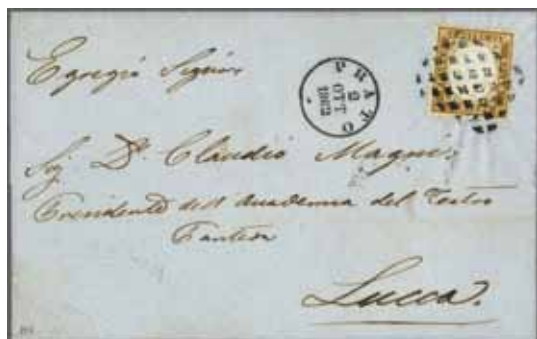 Egregio Signor
PRATO
2
OTT
1862
Sig. Dr. Claudio Magni
Presidente dell Accademia del Teatro
Pantera
Lucca.